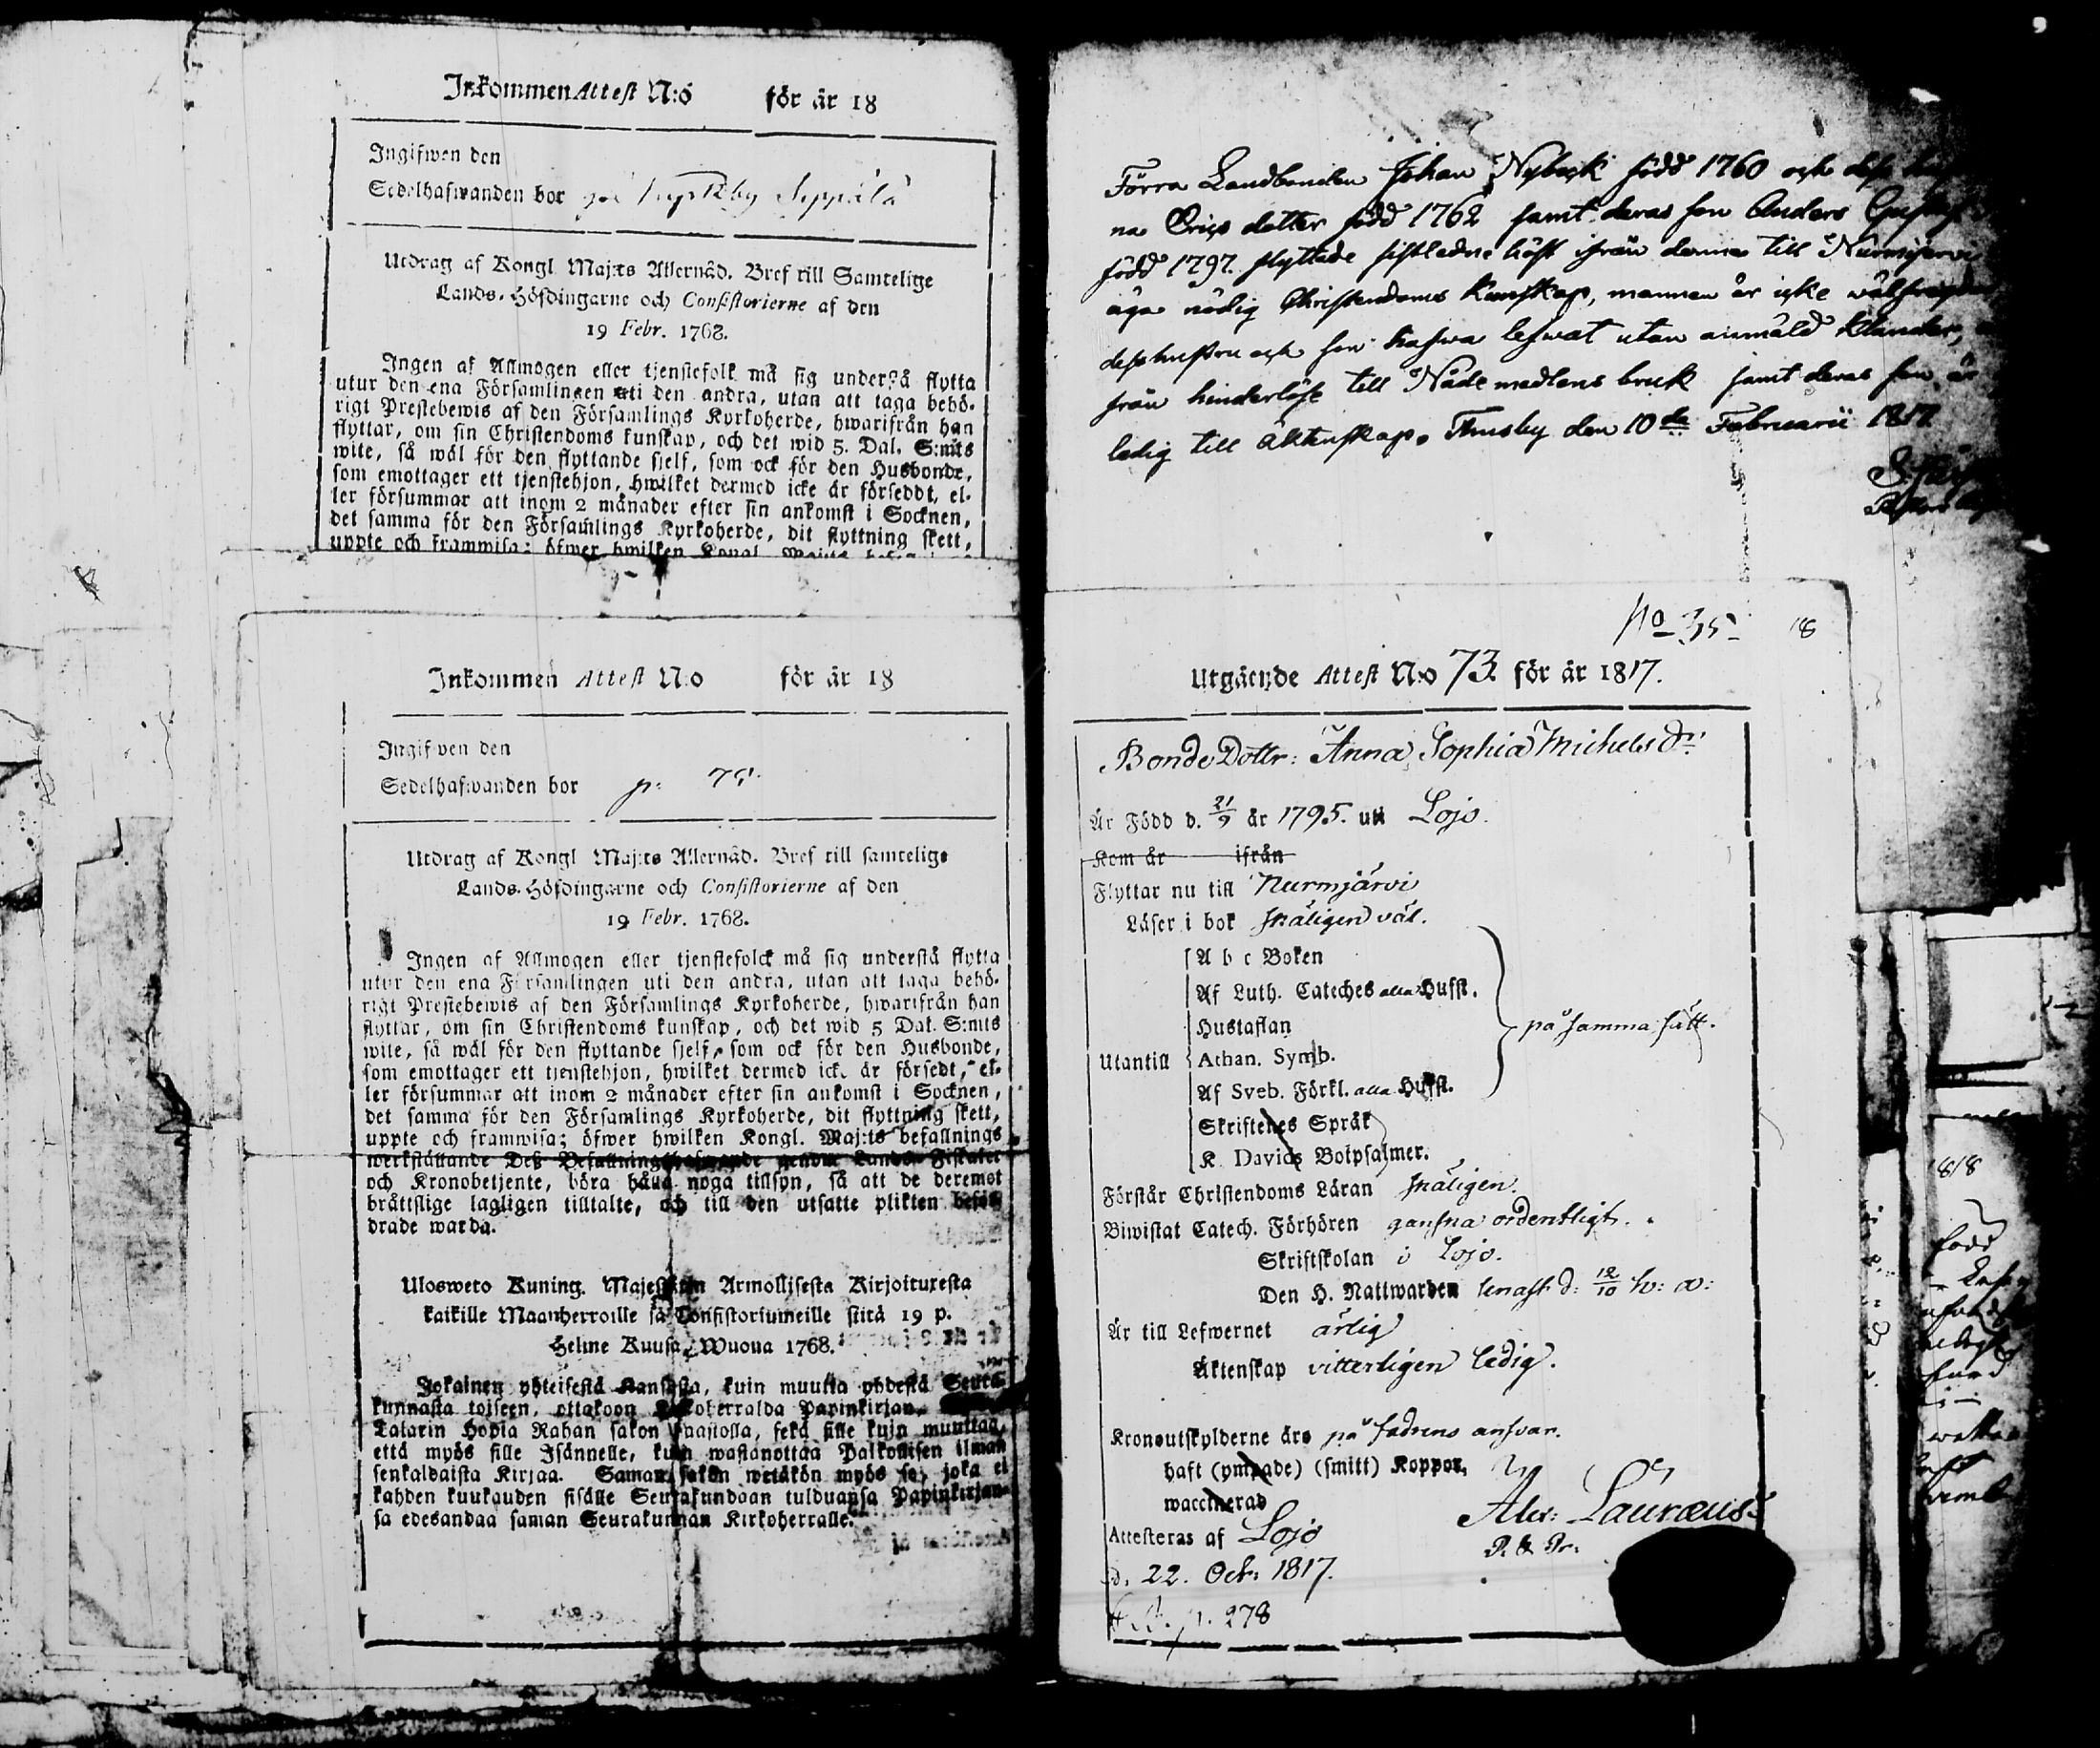 Inkommen Attest N:o för år 18
Ingifwen den
Sedelhafwanden bor på Kyrkby Seppälä
Utdrag af Kongl. Maj:ts Allernåd. Bref till Samtelige
Lands-Höfdingarne och Consistorierne af den
19 Febr. 1768.
Ingen af Allmogen eller tjenstefolk må sig understå flytta
utur den ena Församlingen uti den andra, utan att taga behö-
rigt Prestebewis af den Församlings Kyrkoherde, hwarifrån han
flyttar, om sin Christendoms kunskap, och det wid 5. Dal. S:mts
wite, så wäl för den flyttande sjelf, som ock för den Husbonde,
som emottager ett tjenstehjon, hwilket dermed icke är förseddt, el-
ler försummar att inom 2 månader efter sin ankomst i Socknen,
det samma för den Församlings Kyrkoherde, dit flyttning skett,
uppte och framwisa; öfwer hwilken Kongl. Maj:ts
Inkommen Attest N:o för år 18
Ingifwen den
Sedelhafwanden bor p: 75.
Utdrag af Kongl Maj:ts Allernåd. Bref till samtelige
Lands-Höfdingarne och Consistorierne af den
19 Febr. 1768.
Ingen af Allmogen eller tjenstefolck må sig understå flytta
utur den ena Församlingen uti den andra, utan att taga behö-
rigt Prestebewis af den Församlings Kyrkoherde, hwarifrån han
flyttar, om sin Christendoms kunskap, och det wid 5 Dal. S:mts
wite, så wäl för den flyttande sjelf, som ock för den Husbonde,
som emottager ett tjenstehjon, hwilket dermed icke är försedt, el-
ler försummar att inom 2 månader efter sin ankomst i Socknen,
det samma för den Församlings Kyrkoherde, dit flyttning skett,
uppte och framwisa; öfwer hwilken Kongl. Maj:ts befallnings
werkställande Deß Befallningshafwande genom Lands-Fiskaler
och Kronobetjente, böra hålla noga tillsyn, så att de deremot
bråttslige lagligen tilltalte, och till den utsatte plikten beför-
drade warda.
Ulosweto Kuning. Majestetin Armollisesta Kirjoituxesta
kaikille Maanherroille ja Consistoriumeille siitä 19 p.
Helme Kuusa, Wuonna 1768.
Jokainen yhteisestä Kansasta, kuin muutta yhdestä Seura-
kunnasta toiseen, ottakoon Kirkoherralda Papinkirjan,
Talarin Hopia Rahan sakon haastolla, sekä sille kuin muuttaa,
että myös sille Isännelle, kuin wastanottaa Palkollisen ilman
senkaldaista Kirjaa. Saman sakon wetäkön myös se, joka ei
kahden kuukauden sisälle Seurakundaan tulduansa Papinkirjan-
sa edesandaa saman Seurakunnan Kirkoherralle.
Förra Landbonden Johan Nybeck född 1760 och dess
na Erics dotter född 1762 samt deras son Anders Gustaf
född 1797. flyttade sistledne höst ifrån denna till Nurmijervi
äga nödig Christendoms kunskap, mannen är icke
dess hustru och son hafwa lefwat utan anmäld klander,
från hinderlöse till Nådemedlens bruk samt deras son är
ledig till äktenskap. Thusby den 10de Februarii 1817
No 35. 18
Utgående Attest N:o 73. för år 1817.
Bonde Dottr: Anna Sophia Michelsdr.
Är Född d. 21/9 år 1795. uti Lojo.
Kom år ifrån
Flyttar nu till Nurmjärvi
Läser i bok skäligen väl.
A b c Boken
Af Luth. Cateches alla Hufst.
Hustaflan
Utantill Athan. Symb. på samma sätt.
Af Sveb. Förkl. alla Hufst.
Skriftenes Språk
K. Davids Botpsalmer.
Förstår Christendoms Läran skäligen.
Biwistat Catech. Förhören ganska ordentligt.
Skriftskolan i Lojo.
Den H. Nattwarden senast d: 12/10 h: a:
Är till Lefwernet ärlig
Äktenskap vitterligen ledig.
Kronoutskylderne äro på fadrens ansvar.
haft (ympade) (smitt) Koppor,
waccinerad
Attesteras af Lojo Alex: Lauræus
P. & Pr.
d. 22. Oct: 1817.
p. 278
1818
född